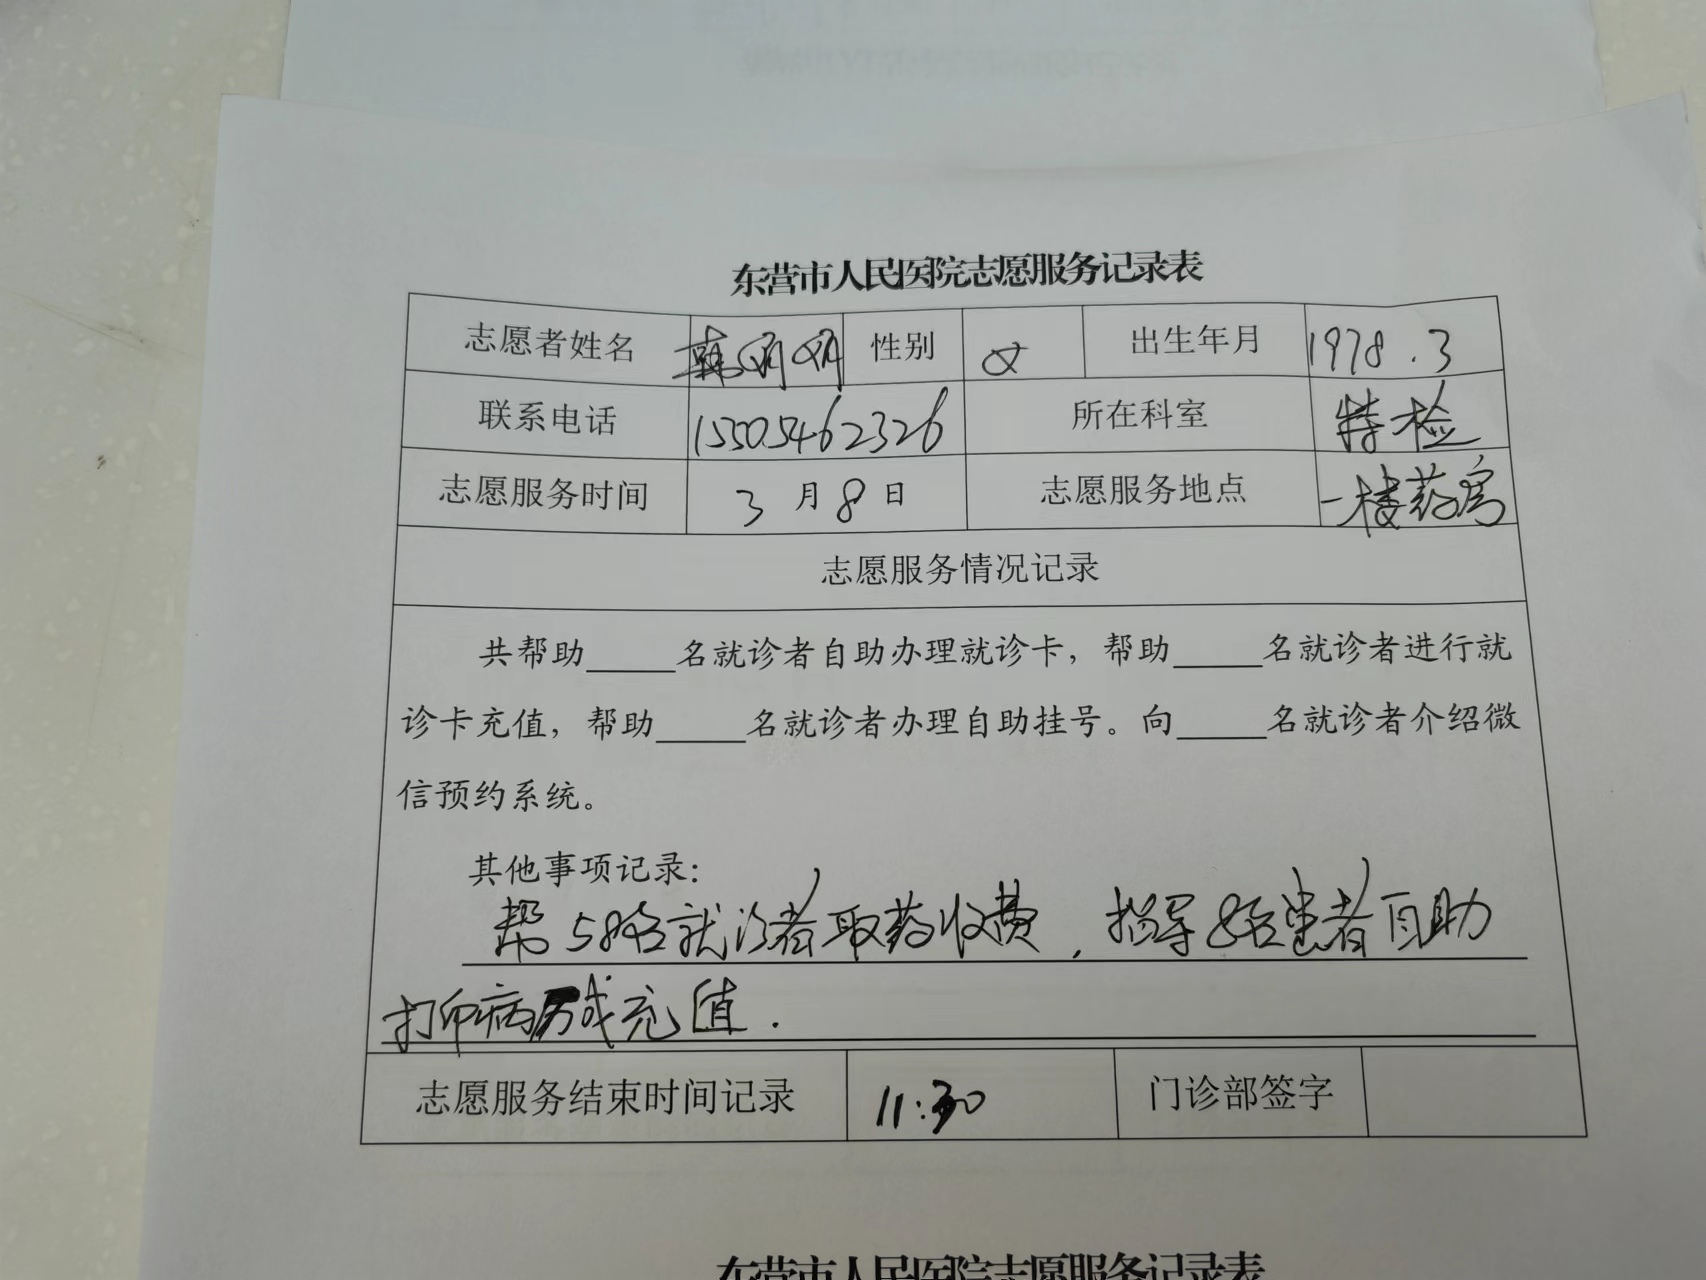 东营市人民医院志愿服务记录表
志愿者姓名 韩娟娟 性别 女 出生年月 1978.3
联系电话 15505462326 所在科室 特检
志愿服务时间 3月8日 志愿服务地点 一楼药房
志愿服务情况记录
共帮助_____名就诊者自助办理就诊卡，帮助_____名就诊者进行就
诊卡充值，帮助_____名就诊者办理自助挂号。向_____名就诊者介绍微
信预约系统。
其他事项记录：
帮58名就诊者取药收费，指导8名患者自助
打印病历或充值.
志愿服务结束时间记录 11:30 门诊部签字
东营市人民医院志愿服务记录表